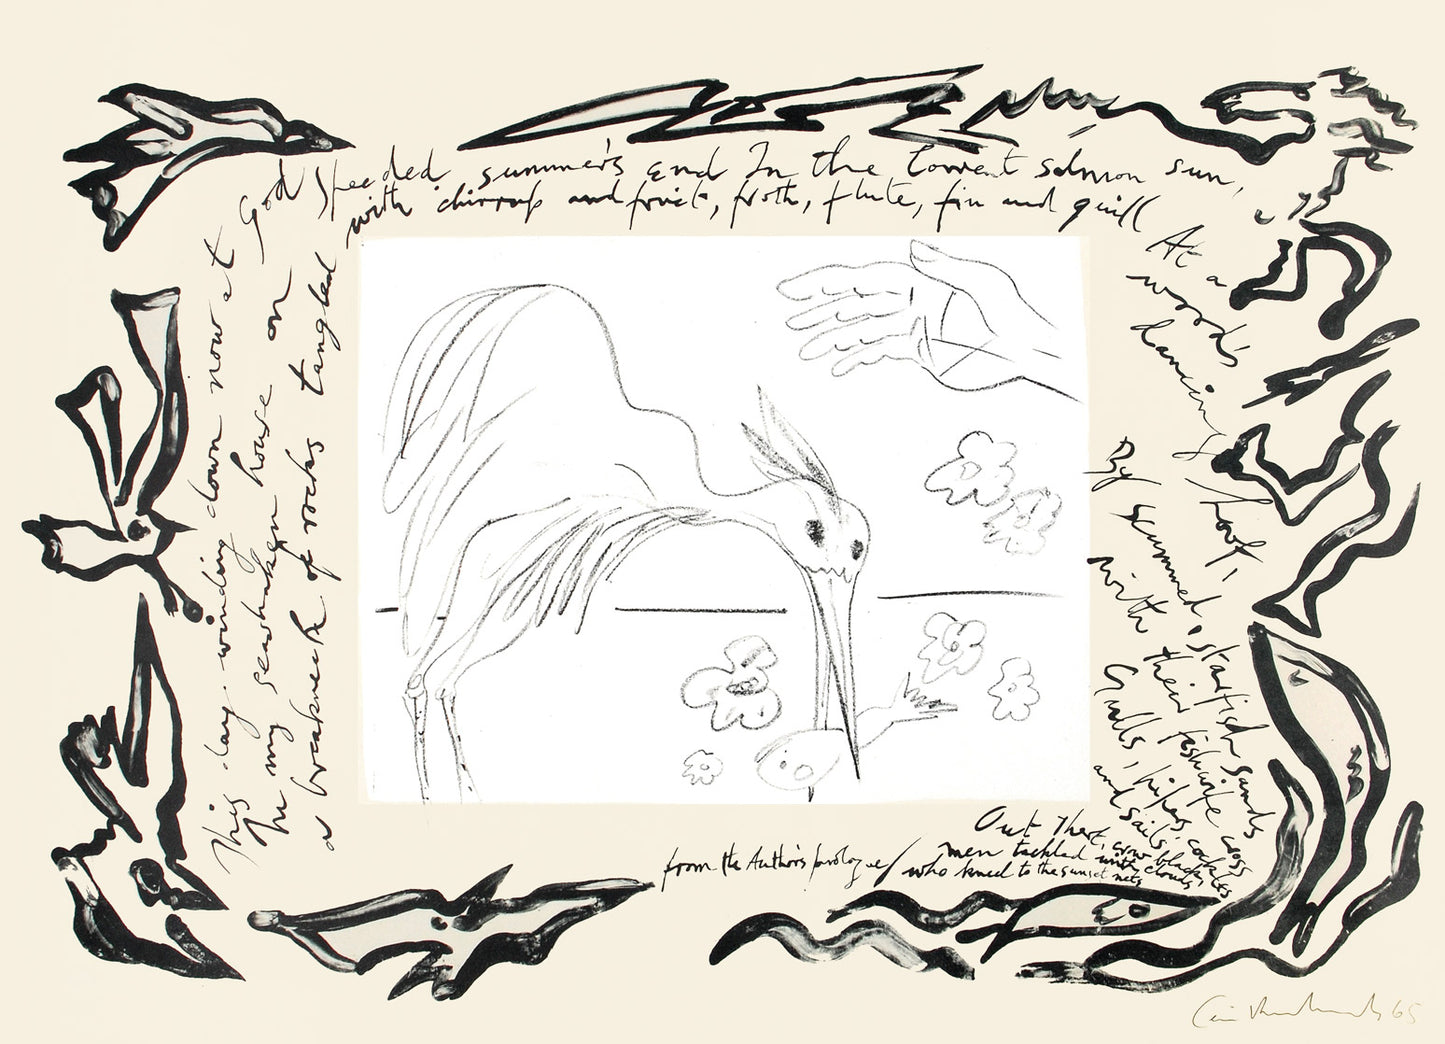 This day winding down now at
God speeded summer's end In the torrent salmon sun,
In my seashaken house on
a breakneck of rocks tangled
with chirrup and fruit, froth, flute, fin and quill
At a
wood's
dancing hoof,
By scummed, starfish sands
with their fishwife cross
Gulls, pipers, cockles
and sails,
Out there, crow black,
men tackled with clouds
who kneel to the sunset nets
from the Author's prologue /
Ceri Richards 65